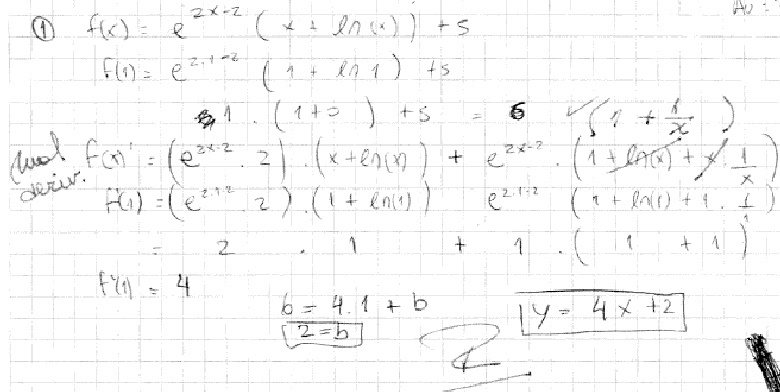 ① f(x) = e^{2x-2} ( x + ln(x) ) + 5
f(1) = e^{2·1-2} ( 1 + ln 1 ) + 5
1 · ( 1 + 0 ) + 5 = 6 ( 1 + 1/x )
mal deriv. f(x)' = ( e^{2x-2} · 2 ) · ( x + ln(x) ) + e^{2x-2} · ( 1 + ln(x) + x · 1/x )
f'(1) = ( e^{2·1-2} · 2 ) · ( 1 + ln(1) ) e^{2·1-2} ( 1 + ln(1) + 1 · 1/1 )
= 2 · 1 + 1 · ( 1 + 1 )
f'(1) = 4
6 = 4 · 1 + b
2 = b
y = 4x + 2